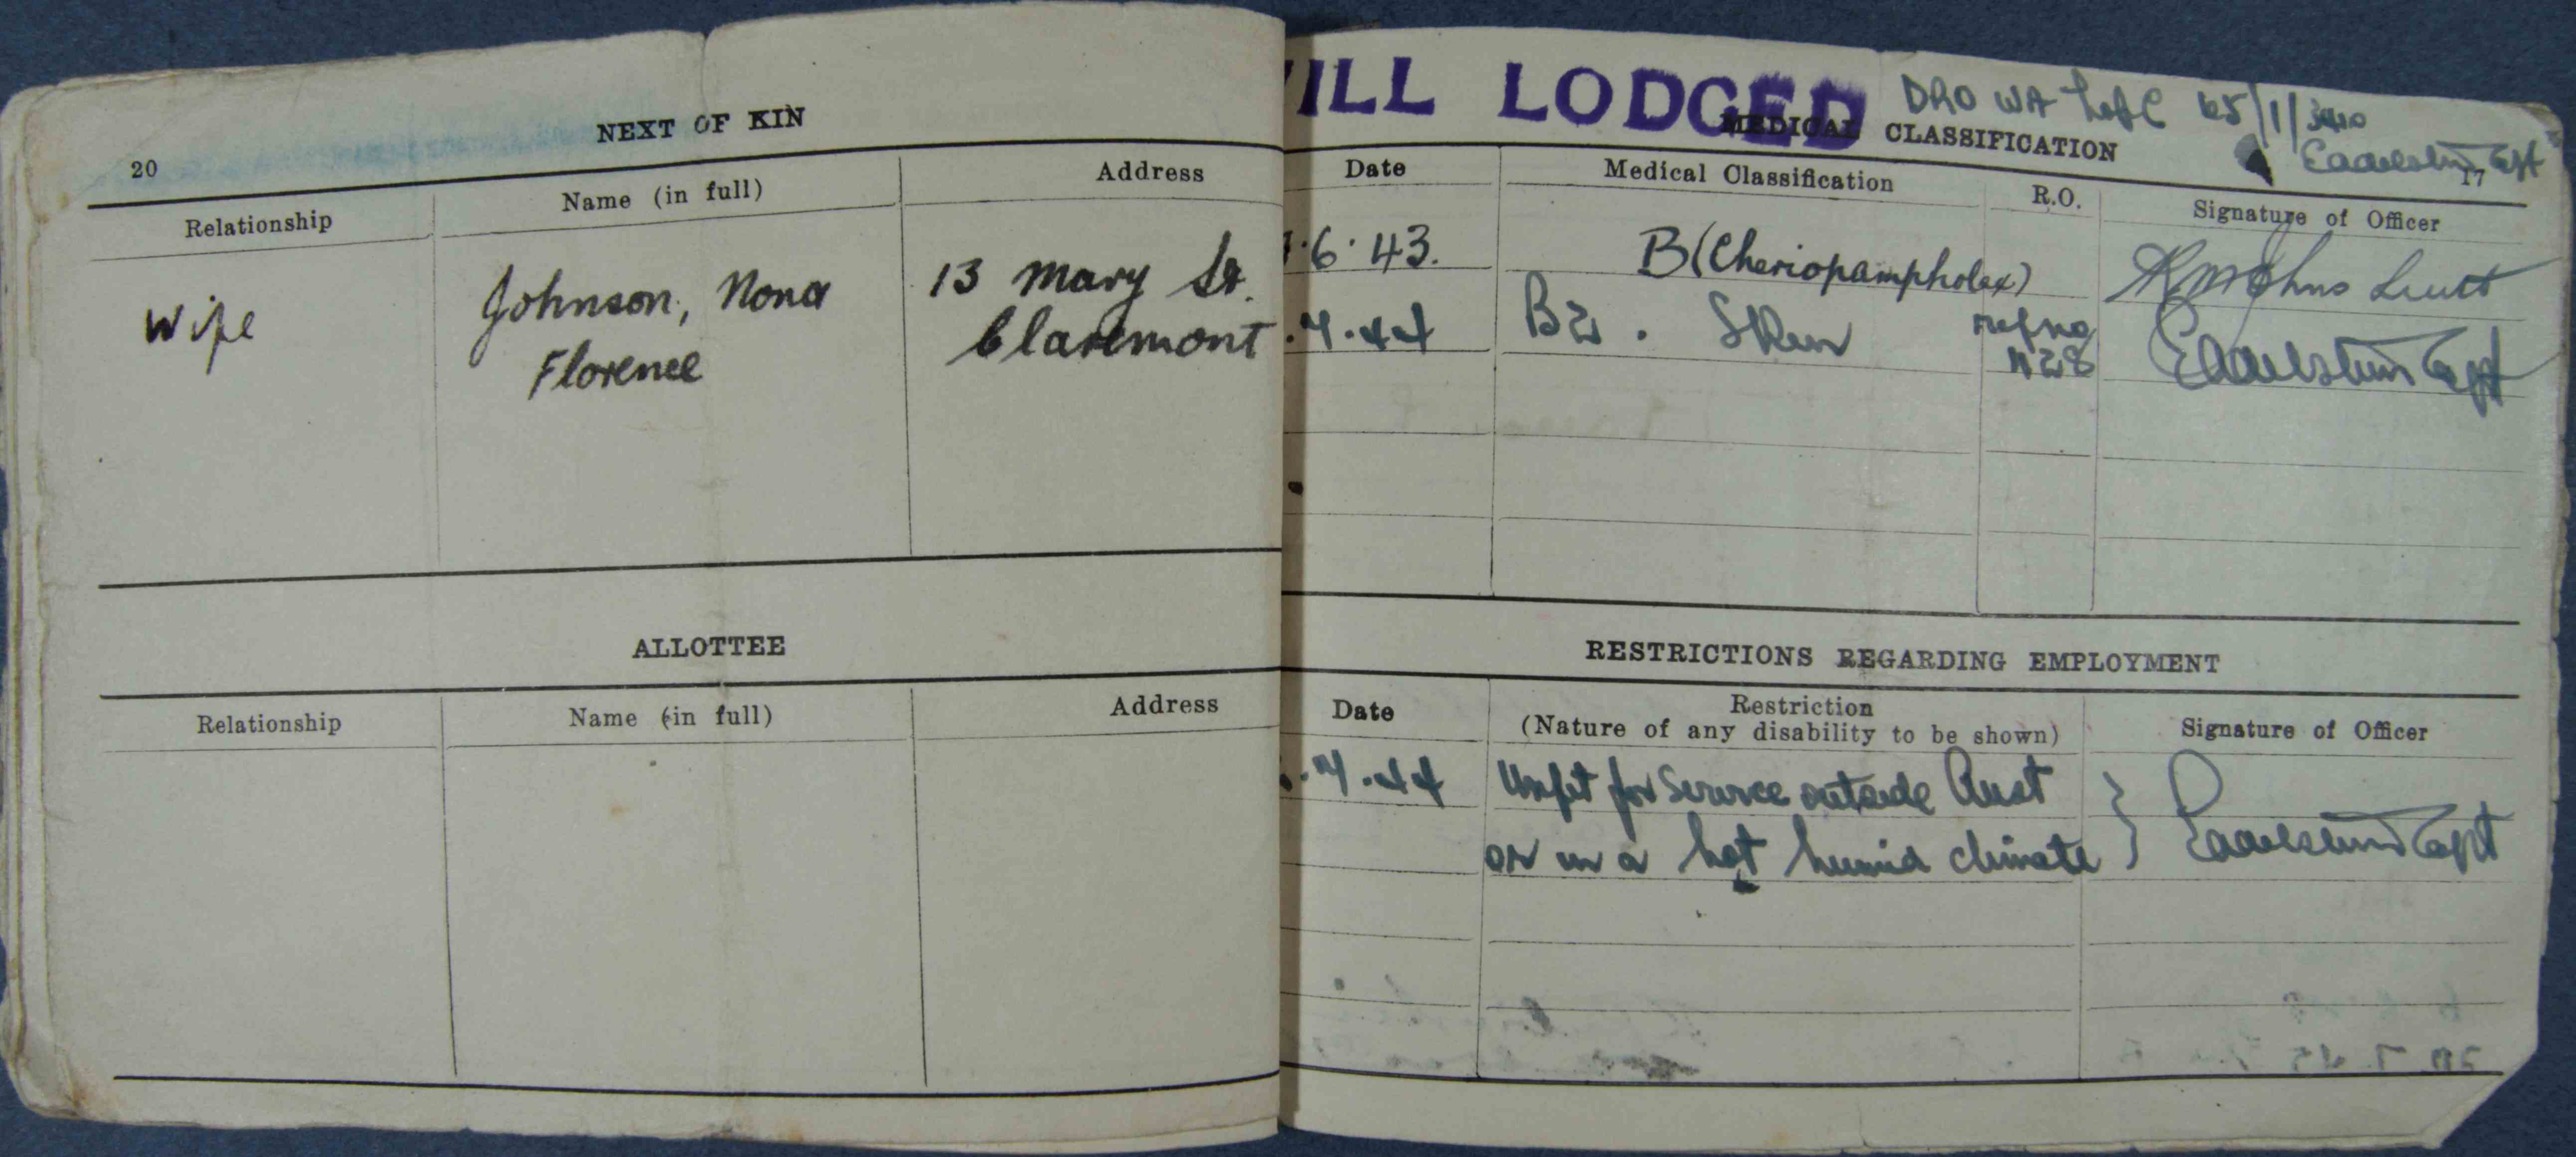 20
NEXT OF KIN
Relationship Name (in full) Address
Wife Johnson, Nona 13 Mary St.
Florence Claremont
ALLOTTEE
Relationship Name (in full) Address
ILL LODGED
DRO WA
MEDICAL CLASSIFICATION
Capt
17
Date Medical Classification R.O. Signature of Officer
.6.43. B (Cheriopampholex) Lieut
.7.44 B2. Skin Capt
RESTRICTIONS REGARDING EMPLOYMENT
Date Restriction Signature of Officer
(Nature of any disability to be shown)
.7.44 Unfit for Service outside Aust
or in a hot humid climate Capt